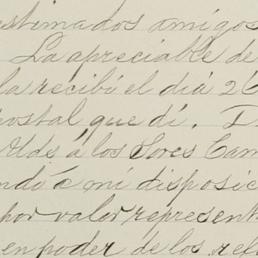 estimados amigos
La apreciable de
la recibí el diá 26
postal que dí.
Alds á los Sores Cam
ndó é mi disposic
por valor represent
en poder de los ref